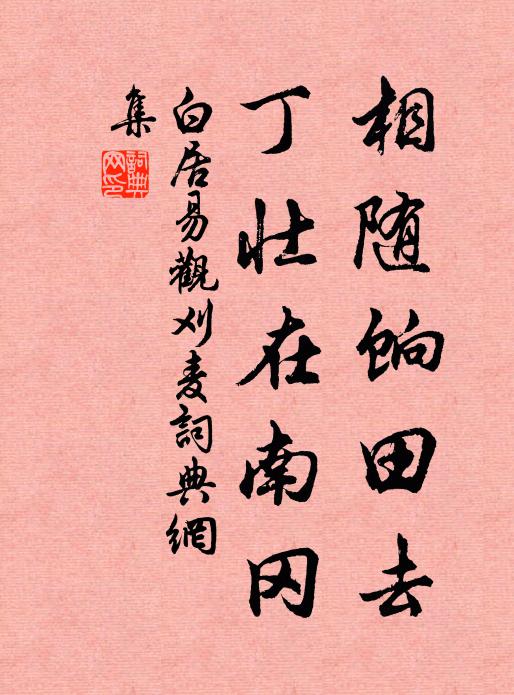 相随饷田去
丁壮在南冈
白居易觀刈麦詞典網
集
詞典網印